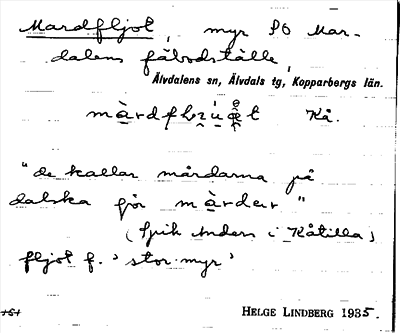 Mardfljot, myr SO Mar-
dalens fäbodställe,
Älvdalens sn, Älvdals tg, Kopparbergs län.
Kå.
"de kallar mårdarna på
dalska för màrder"
(Spik Anders i Kåtilla)
fljot f. 'stor myr'
HELGE LINDBERG 1935.